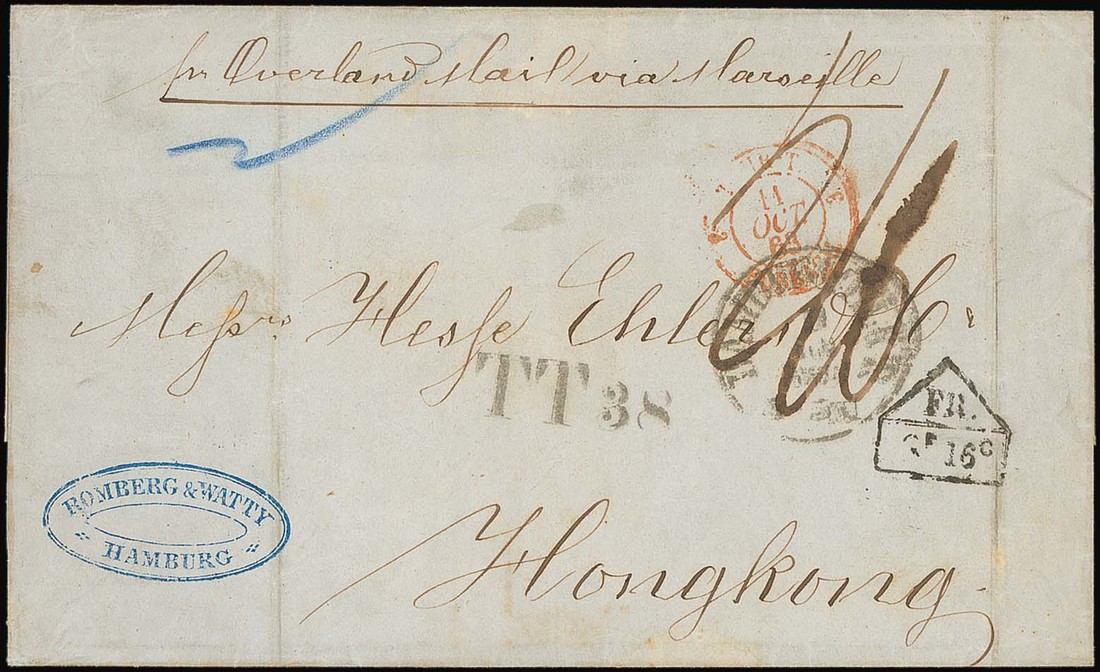 pr Overland Mail via Marseille
11
OCT
Messrs Hesse Ehlers & Co
TT 38
FR.
2F 16c
ROMBERG & WATTY
HAMBURG
Hongkong